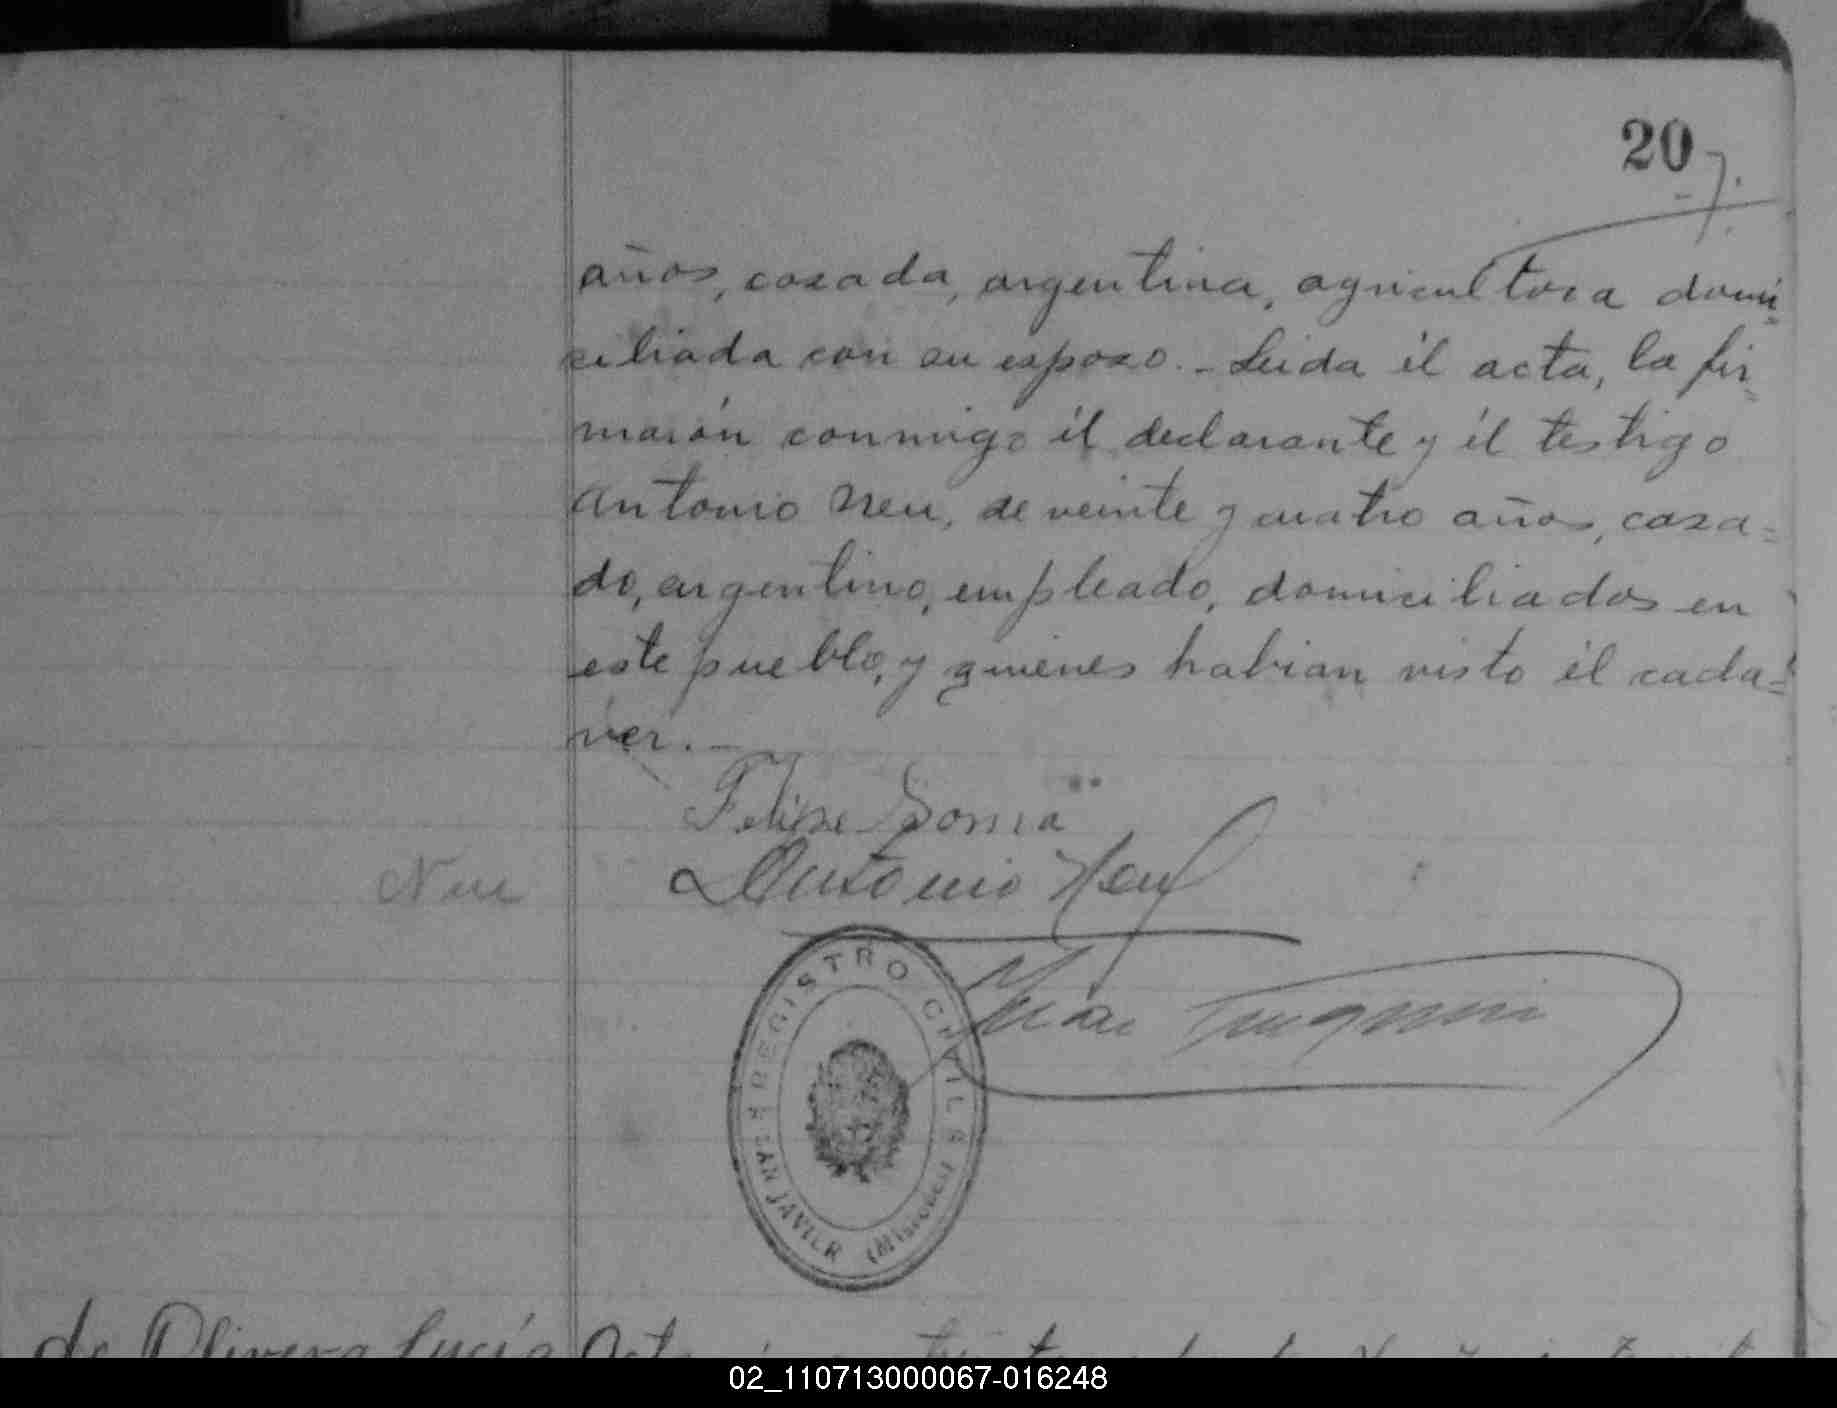 20
años, casada, argentina, agricultora domi=
ciliada con su esposo.- Leida él acta, la fir=
marón conmigo él declarante y él testigo
Antonio Neu, de veinte y cuatro años, casa=
do, argentino, empleado, domiciliados en
este pueblo, y quienes habian visto él cada=
ver.-
Felipe
Antonio Neu
Neu
REGISTRO CIVIL
SAN JAVIER (Misiones)
de Olivera Lucía
02_110713000067-016248